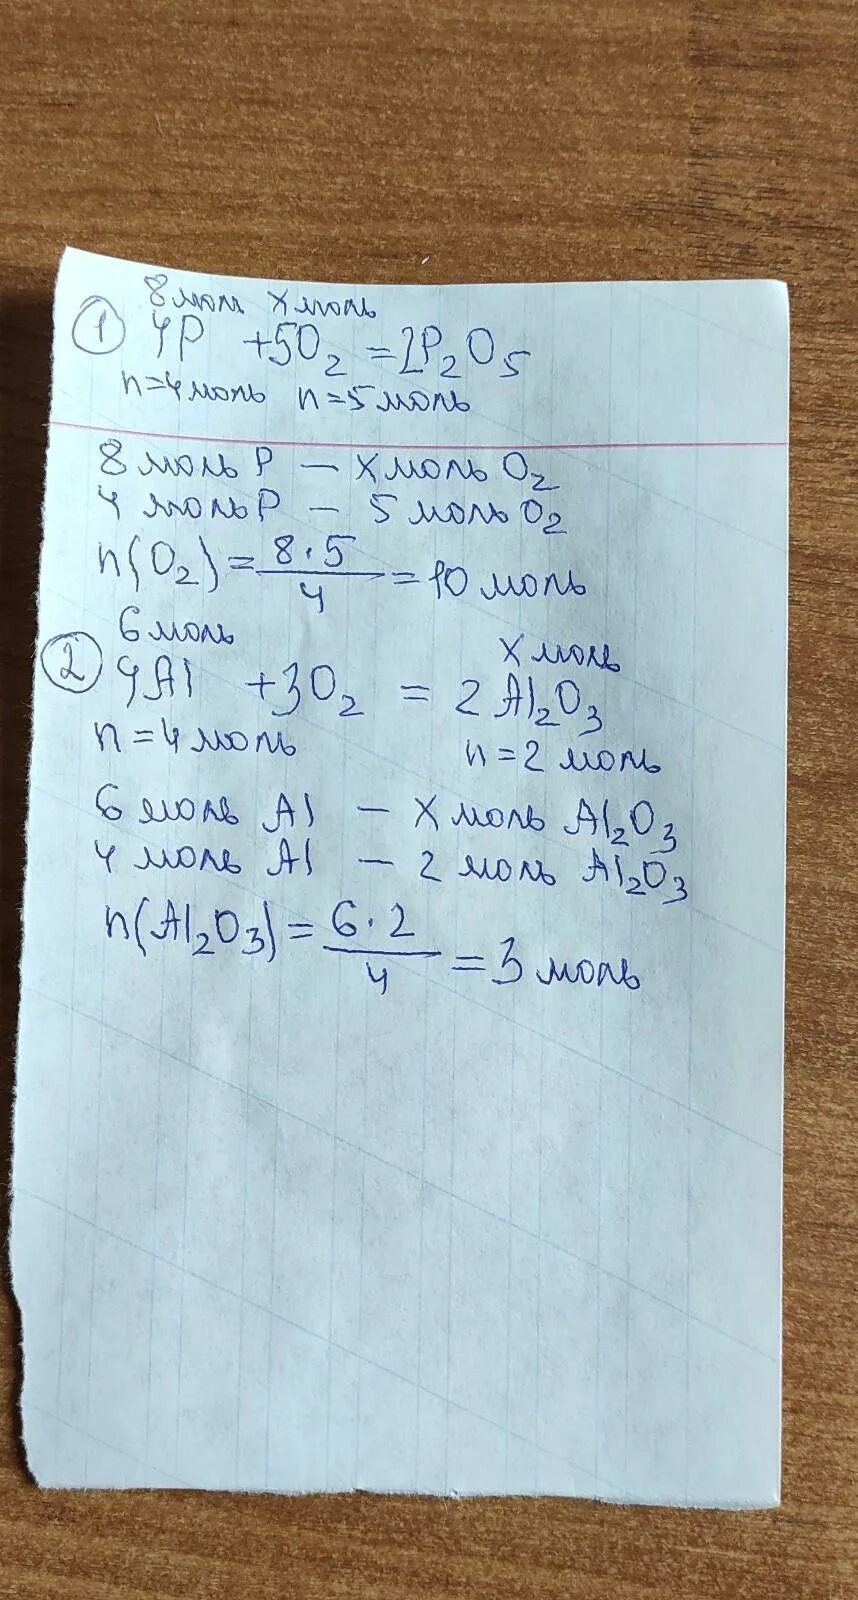 8 моль x моль
① 4P + 5O₂ = 2P₂O₅
n=4 моль n=5 моль
8 моль P — x моль O₂
4 моль P — 5 моль O₂
n(O₂) = 8·5/4 = 10 моль
6 моль x моль
② 4Al + 3O₂ = 2Al₂O₃
n=4 моль n=2 моль
6 моль Al — x моль Al₂O₃
4 моль Al — 2 моль Al₂O₃
n(Al₂O₃) = 6·2/4 = 3 моль